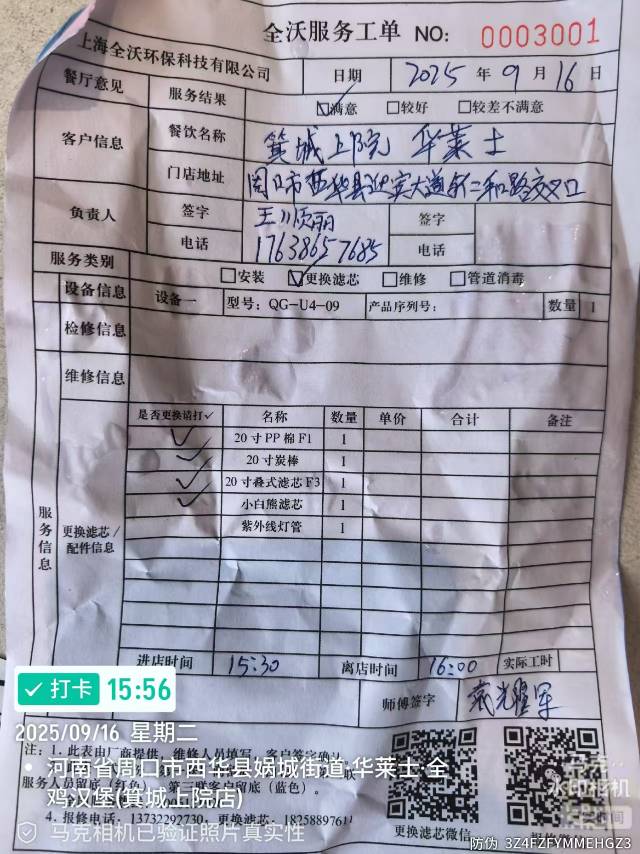 全沃服务工单 NO: 0003001
上海全沃环保科技有限公司 日期 2025 年 9 月 16 日
餐厅意见 服务结果 ☑满意 □较好 □较差不满意
客户信息 餐饮名称 箕城上院 华莱士
门店地址 周口市西华县迎宾大道与二和路交叉口
负责人 签字 王顺丽 签字
电话 17638657685 电话
服务类别 □安装 ☑更换滤芯 □维修 □管道消毒
设备信息 设备一 型号: QG-U4-09 产品序列号: 数量 1
检修信息
维修信息
服务信息
更换滤芯/配件信息
是否更换请打✓ 名称 数量 单价 合计 备注
✓ 20寸PP棉F1 1
✓ 20寸炭棒 1
✓ 20寸叠式滤芯F3 1
✓ 小白熊滤芯 1
紫外线灯管 1
进店时间 15:30 离店时间 16:00 实际工时
师傅签字
打卡 15:56
2025/09/16 星期二
注: 1. 此表由厂商提供, 维修人员填写, 客户签字确认
河南省周口市西华县娲城街道·华莱士·全鸡汉堡(箕城上院店)
服务人员留底(红色), 第三联客户留底(蓝色)。
4. 报修电话: 13732292730、1825889761
马克相机已验证照片真实性
更换滤芯微信
水印相机
防伪 3Z4FZFYMMEHGZ3